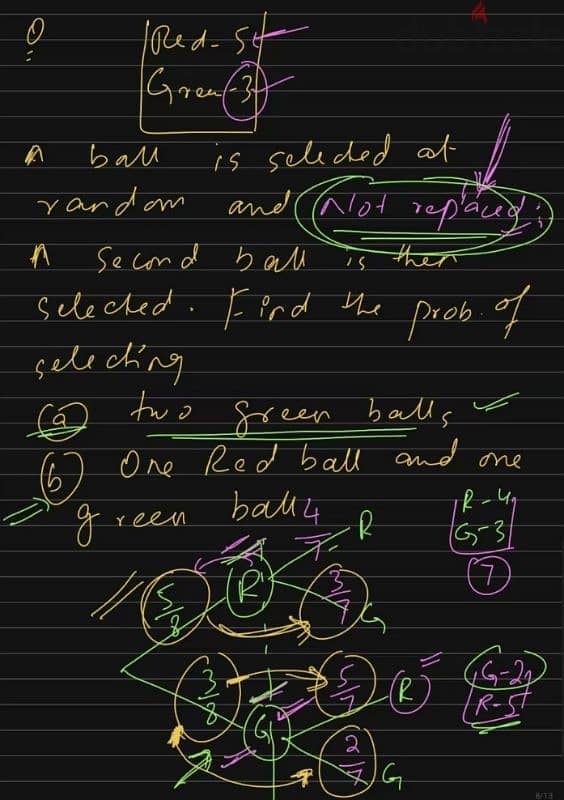 Q
Red - 5
Green - 3
A ball is selected at
random and Not replaced.
A second ball is then
selected. Find the prob. of
selecting
(a) two green balls
(b) One Red ball and one
green ball
4/7 R
R - 4
G - 3
7
5/8 R 3/7 G
3/8 5/7 R
G - 2
R - 5
G
2/7 G
8/13